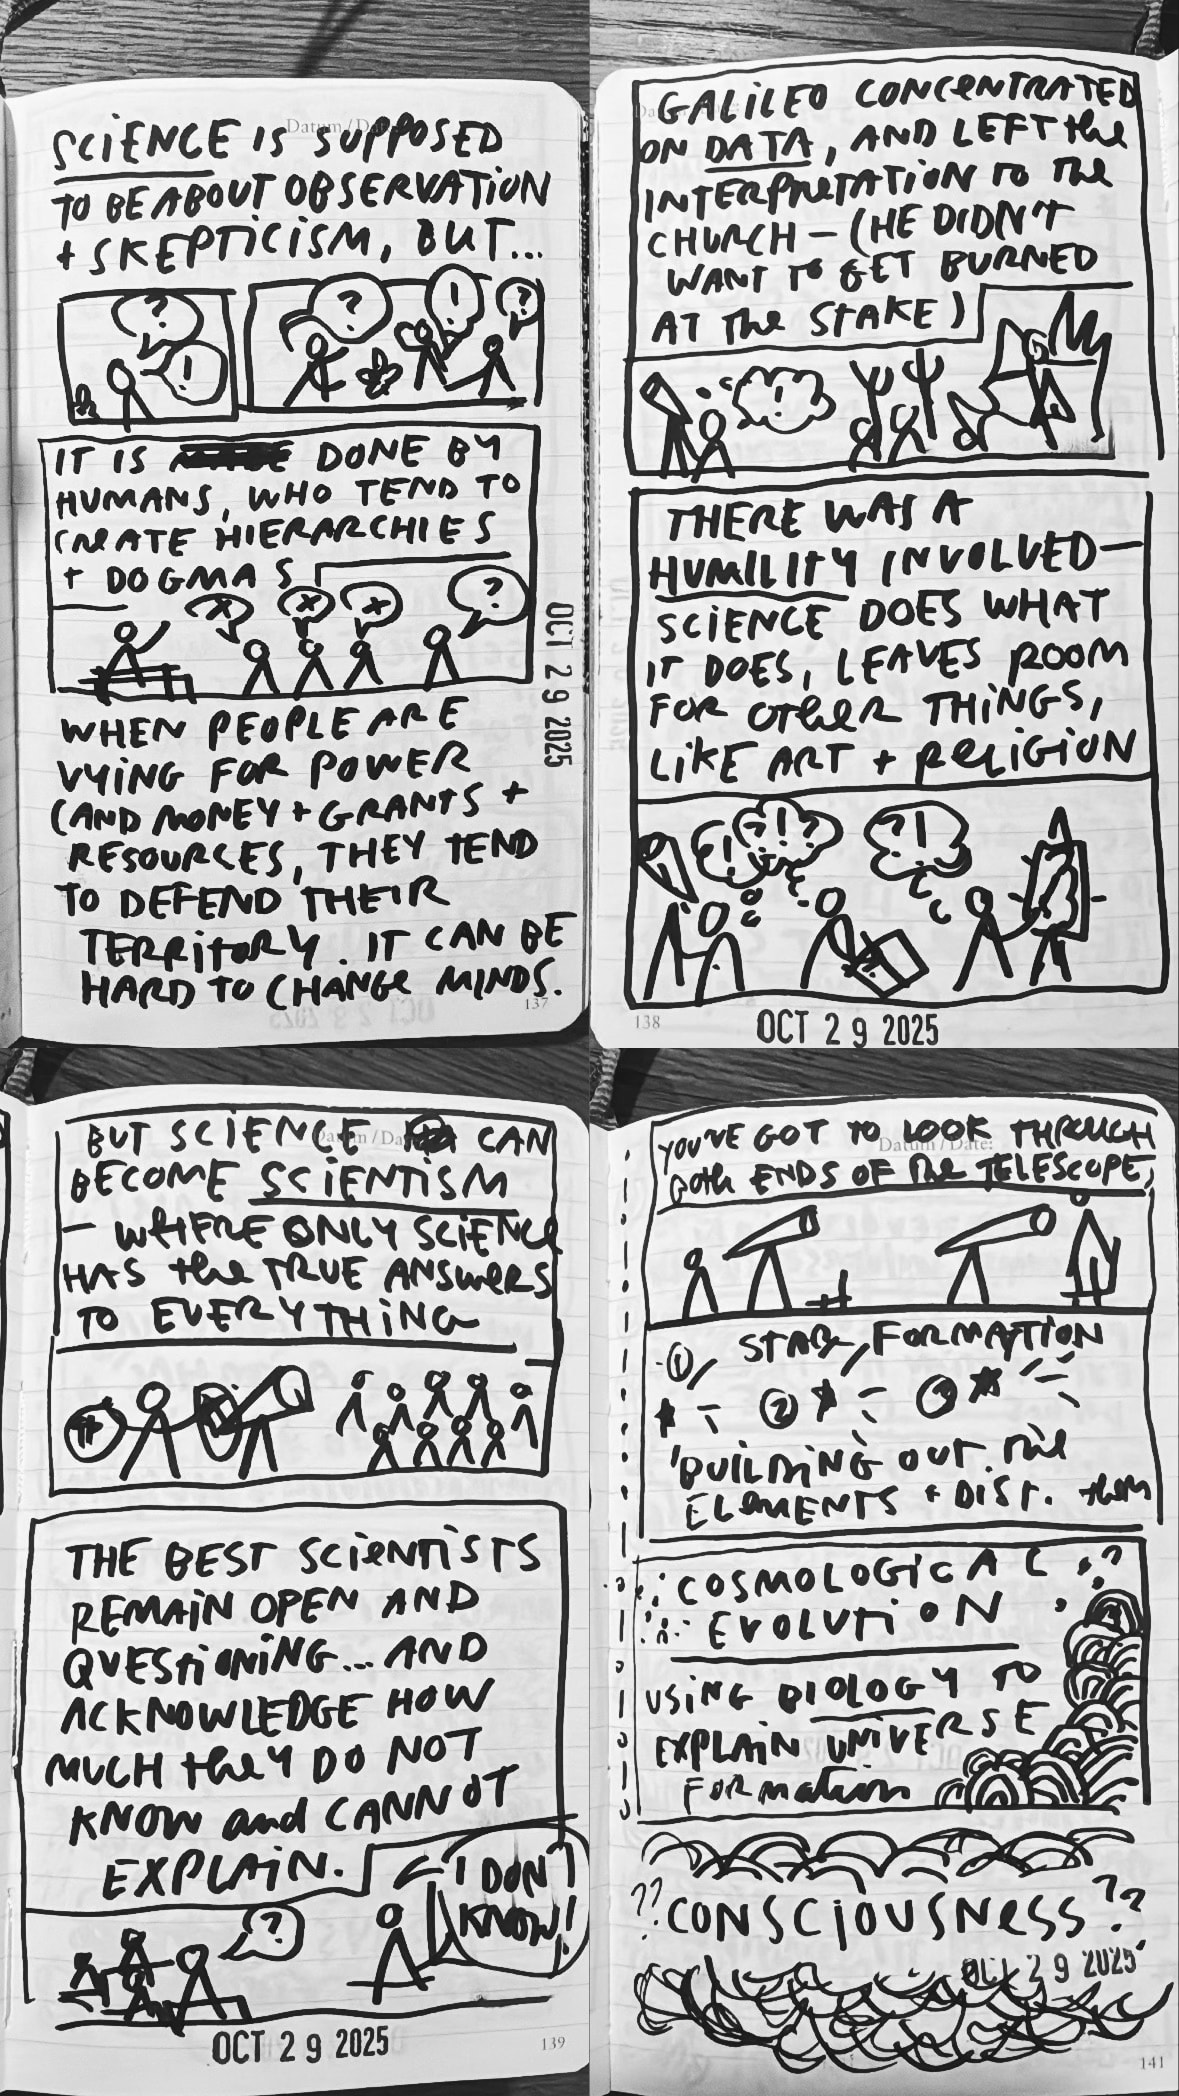 Datum / Date:
SCIENCE IS SUPPOSED
TO BE ABOUT OBSERVATION
+ SKEPTICISM, BUT...
?
!
?
!
?
IT IS DONE BY
HUMANS, WHO TEND TO
CREATE HIERARCHIES
+ DOGMAS
X
X
X
?
WHEN PEOPLE ARE
VYING FOR POWER
(AND MONEY + GRANTS +
RESOURCES, THEY TEND
TO DEFEND THEIR
TERRITORY. IT CAN BE
HARD TO CHANGE MINDS.
137
OCT 29 2025
GALILEO CONCENTRATED
ON DATA, AND LEFT the
INTERPRETATION TO The
CHURCH — (HE DIDN'T
WANT TO GET BURNED
AT The STAKE)
!
THERE WAS A
HUMILITY INVOLVED —
SCIENCE DOES WHAT
IT DOES, LEAVES ROOM
FOR OTHER THINGS,
LIKE ART + RELIGION
!
?!?
?!
138
OCT 29 2025
Datum / Date:
BUT SCIENCE CAN
BECOME SCIENTISM
— WHERE ONLY SCIENCE
HAS the TRUE ANSWERS
TO EVERYTHING
THE BEST SCIENTISTS
REMAIN OPEN AND
QUESTIONING... AND
ACKNOWLEDGE HOW
MUCH theY DO NOT
KNOW and CANNOT
EXPLAIN.
?
I DON'T
KNOW!
OCT 29 2025
139
Datum / Date:
YOU'VE GOT TO LOOK THROUGH
both ENDS OF The TELESCOPE,
STAR FORMATION
1
2
3
BUILDING OUT The
ELEMENTS + DIST. them
COSMOLOGICAL
EVOLUTION
??
USING BIOLOGY TO
EXPLAIN UNIVERSE
FORMATION
?? CONSCIOUSNESS ??
OCT 29 2025
141